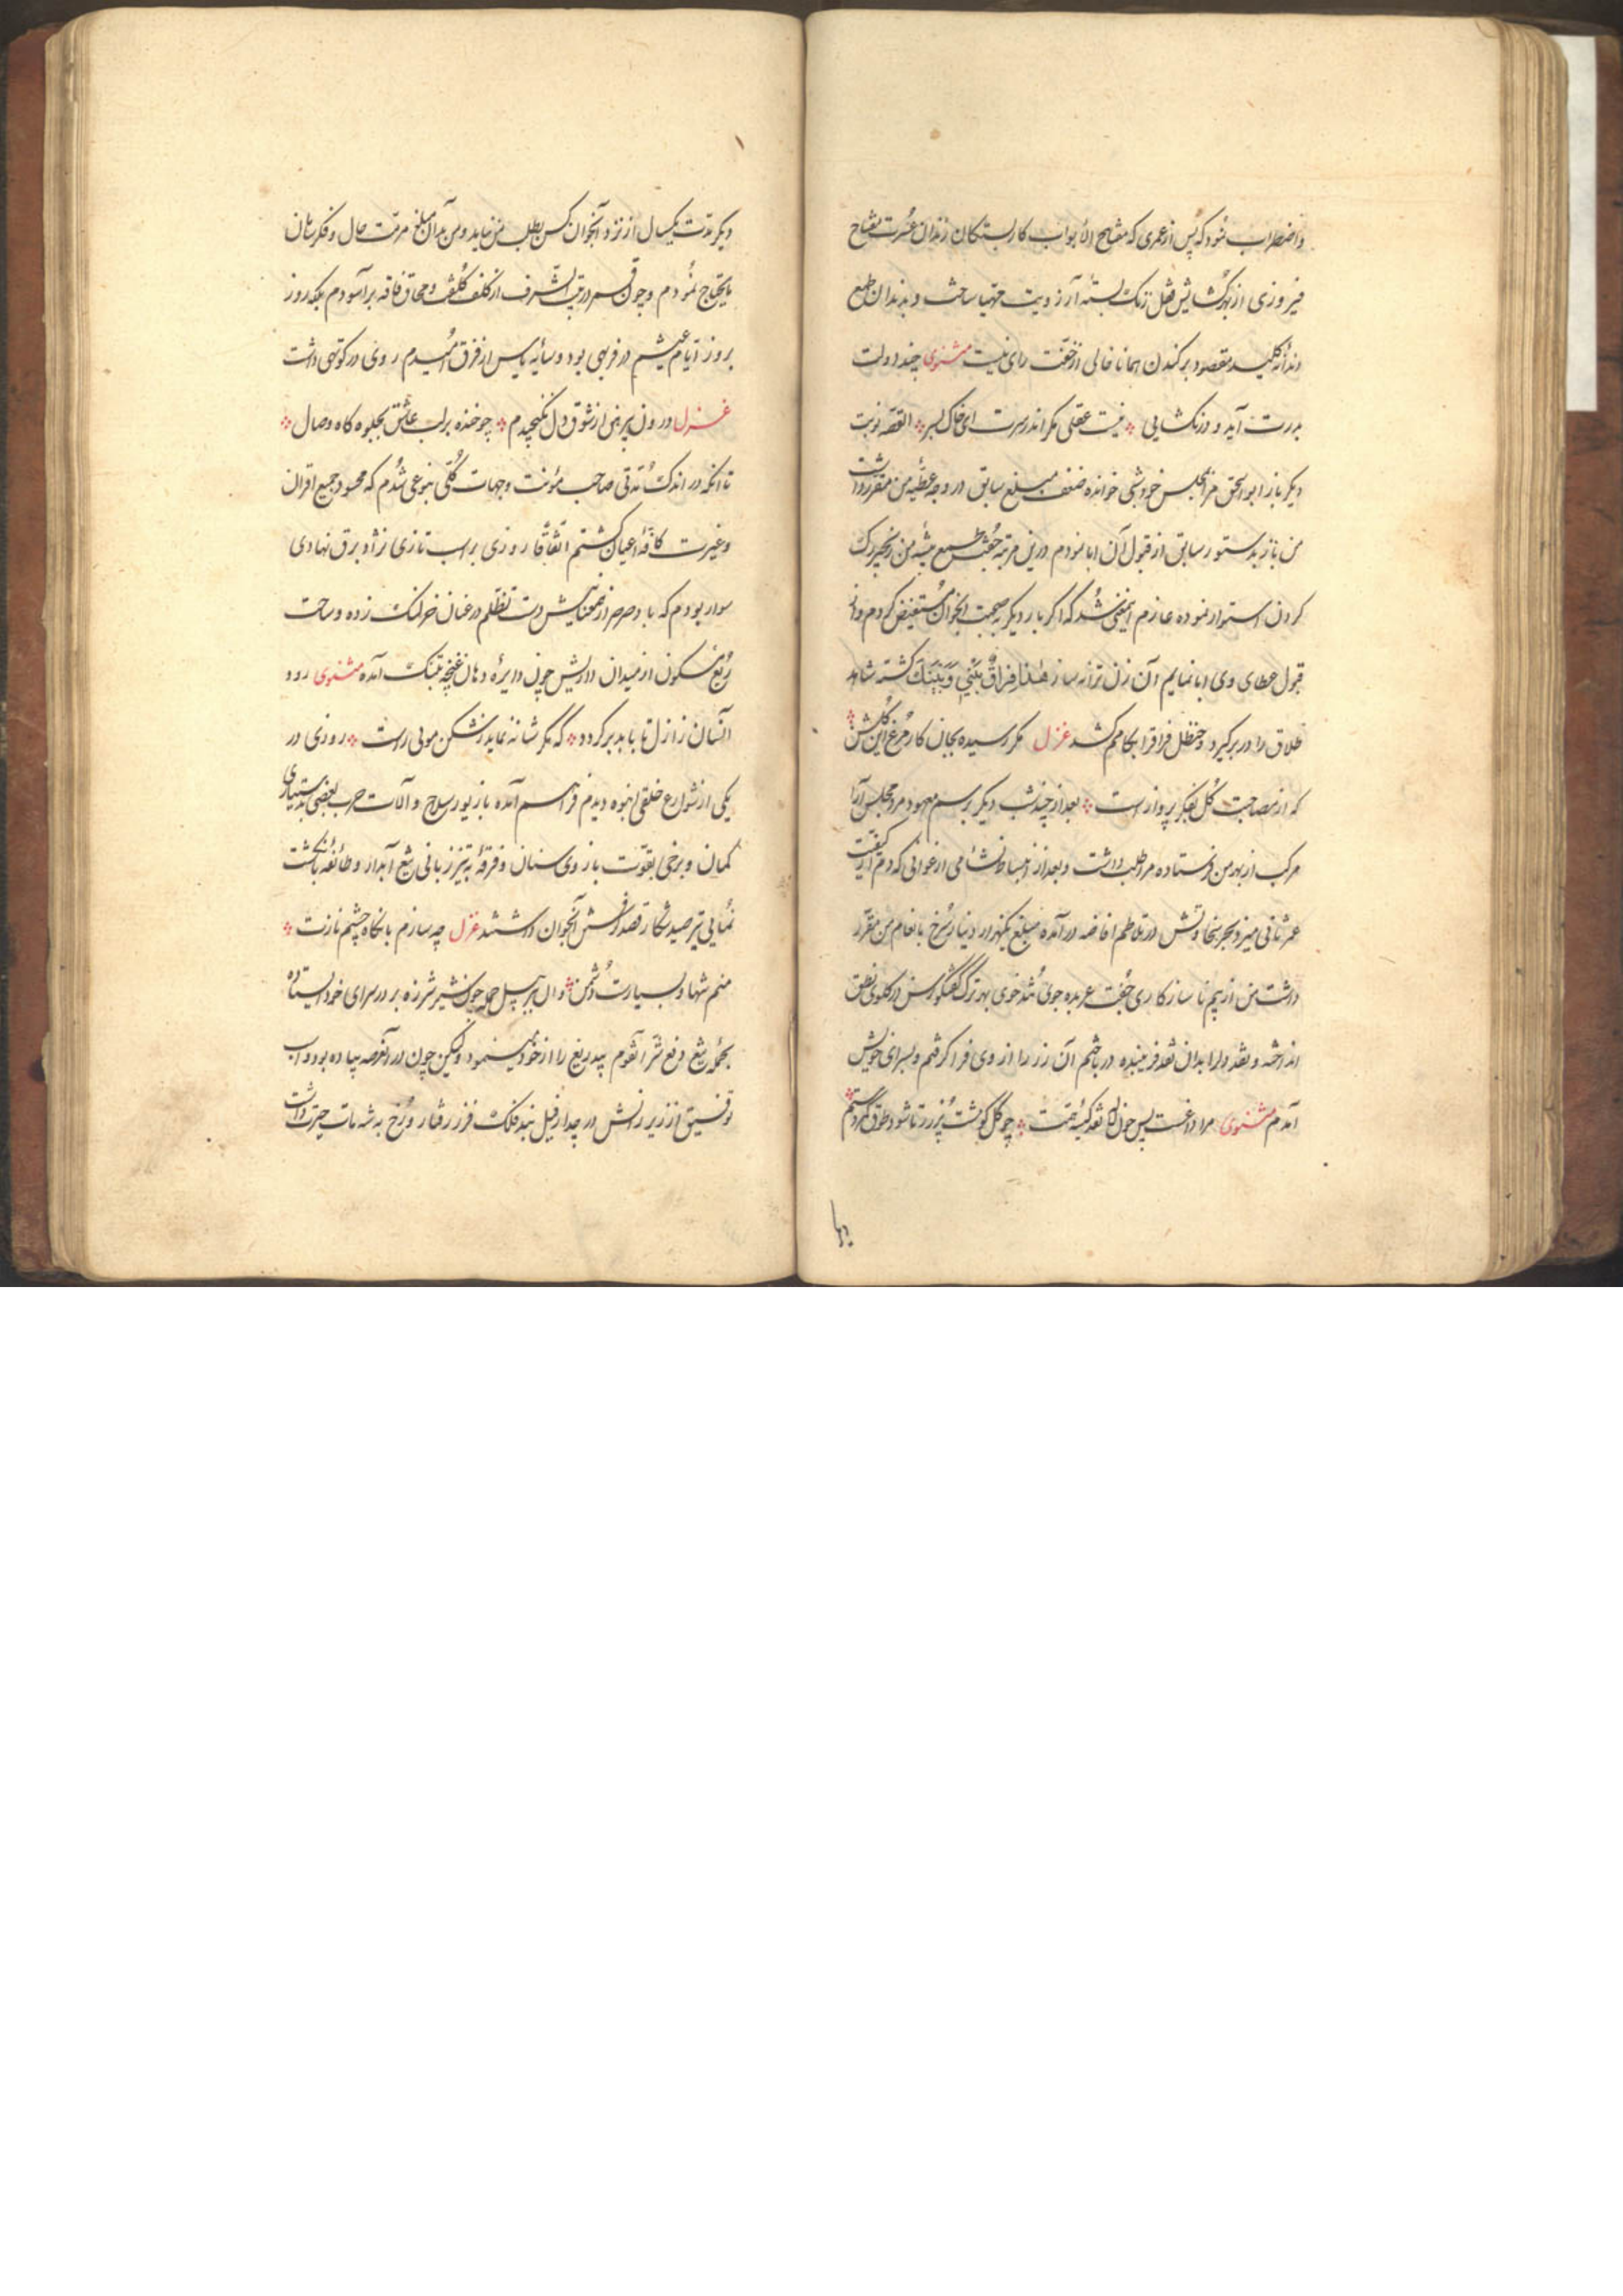 واضطراب شود که پس از عمری که مفتاح الابواب کار بستکان زندان عسرت مفتاح
فیروزی از بهر کشایش قفل زنک بسته آرزویت مهیا ساخت و بدندان طمع
دندانه کلید مقصود برکندن همانا خالی از خفت رای نیست مثنوی چند دولت
بدرت آید و در نکشایی نیست عقلی مکر اندر سرت ای خاک بسر القصه نوبت
دیکر باز ابو الحق مرا بمجلس خودشی خوانده ضعف مبلغ سابق در وجه عطیه من مقرر داشت
من باز بدستور سابق از قبول آن ابا نمودم درین مرتبه جفت
کردن استوار نموده عازم اینمعنی شد که اکر بار دیکر صحبت انجوان مستفیض کردم و از
قبول عطای وی ابا نمایم آن زن ترانه ساز هذا فراق بینی وبینک کشته شاهد
طلاق را در بر کیرد و حنظل فراقرا بکامم کشد غزل مکر رسیده بجان کار مرغ این کلشن
که از مصاحبت کل بفکر پرواز است بعد از چند شب دیکر برسم معهود مرد مجلس آرا
مرکب از بهر من فرستاده مرا طلب داشت و بعد از
عمر ثانی میزد بحر سخاوتش در تلاطم افاضه در آمده مبلغ یکهزار دینار سرخ بانعام من مقرر
داشت من از بیم ناسازکاری جفت عربده جوی تند خوی بهر ترک کفتکو رسن در کلوی نطق
انداخته و نقد دلرا بدان نقد فریبنده در باختم آن زر را از وی فرا کرفتم و بسرای خویش
آمدم مثنوی مرا داغست بس چون لاله نقد کیسه همت چو کل کوشت پر زر تا شود طوق
دیکر مدت یکسال از نزد آنجوان کس بطلب من نیامد و من بدان مبلغ مرمت حال و فکر سامان
مایحتاج نمودم و چون قمر در بیت الشرف از کلف کلفت و محاق فاقه برآسودم بلکه روز
بروز ایام عیشم در فربهی بود و سایه یاس از فرق امیدم روی در کوتهی داشت
غزل درون پیرهن از شوق دل نکنجیدم چو خنده بر لب عاشق بجلوه کاه وصال
تا آنکه در اندک مدتی صاحب مؤنت وجهات کلی بنوعی شدم که محسود جمیع اقران
وغیرت کافه اعیان کشتم اتفاقا روزی بر اسب تازی نژاد برق نهادی
سوار بودم که باد صرصر از همعنانیش دست تظلم در عنان خر لنک زده وساحت
ربع مسکون از میدان داریش چون دایره دهان غنچه بتنک آمده مثنوی رود
آنسان ز ازل تا بابد بر کردد که مکر شانه نماید ز شکن مویی راست روزی در
یکی از شوارع خلقی انبوه دیدم فراهم آمده با زیور سلاح وآلات حرب بعضی بدستیاری
کمان و برخی بقوت بازوی سنان وفرقه به تیز زبانی تیغ آبدار وطائفه بانکشت
نمایی تیر صید شکار قصد آنجوان داشتند غزل چه سازم با نکاه چشم نازت
منم تنها و بسیارت دشمن وآن ببر پیل حمله چون شیر شرزه بر در سرای خود ایستاده
بحمله تیغ دفع شر آنقوم بیدریغ را از خود مینمود ولیکن چون در آنعرصه پیاده بود و اسب
توفیق از زیر رانش در جدار فیل بند فلک فرز رفتار ورخ به شه مات حیرت داشت
یها